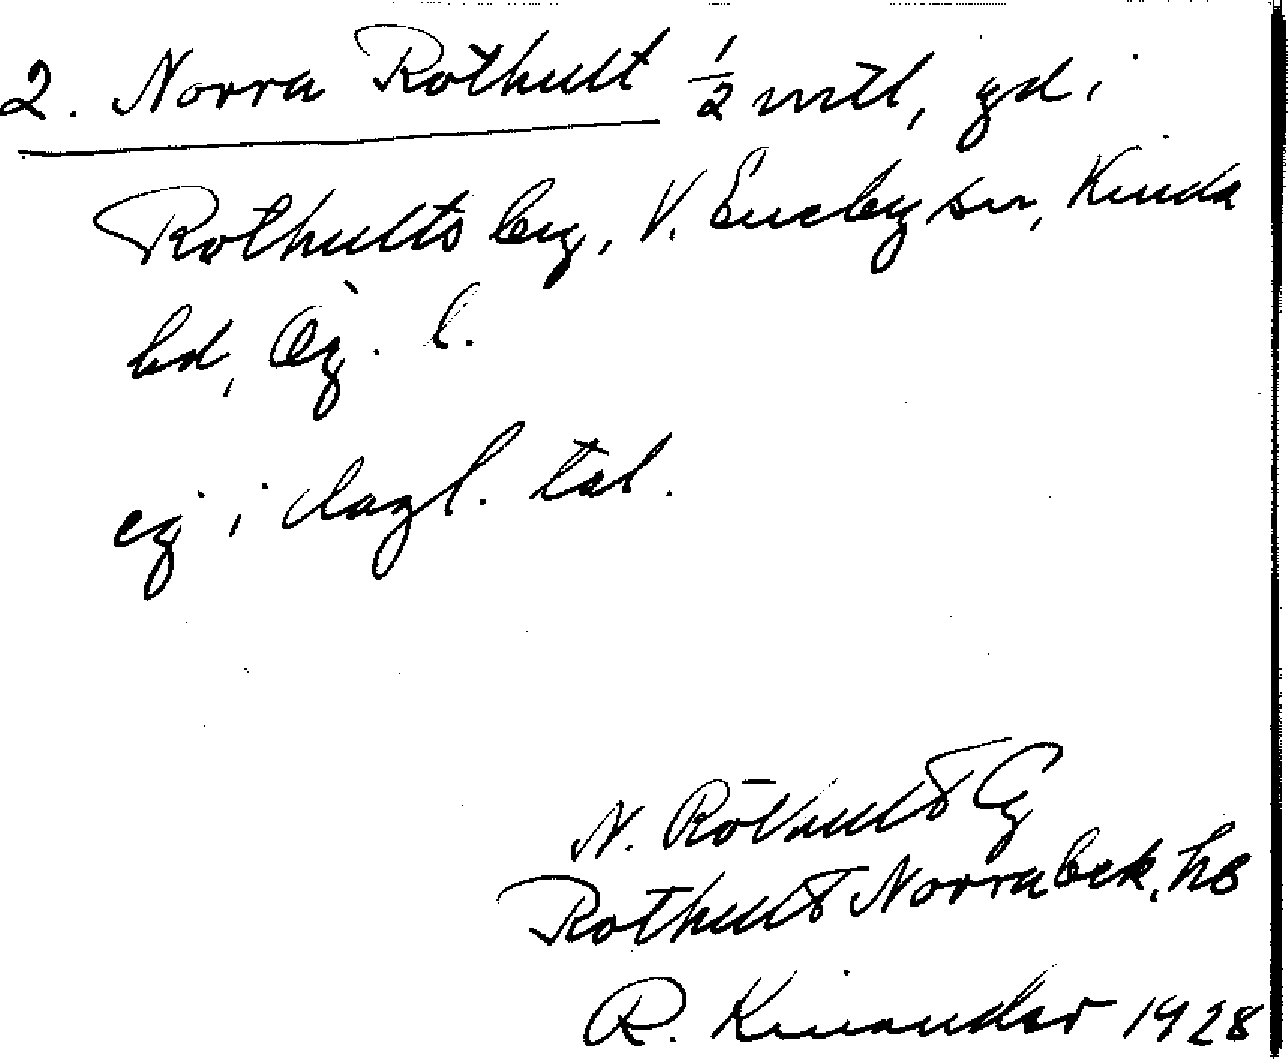 2. Norra Rothult ½ mtl, gd i
Rothults by, V. Eneby sn, Kinda
hd, Ög. l.
ej i dagl. tal.
N. Rōthult G
Rothult Norra bek. hs
R. Kinander 1928